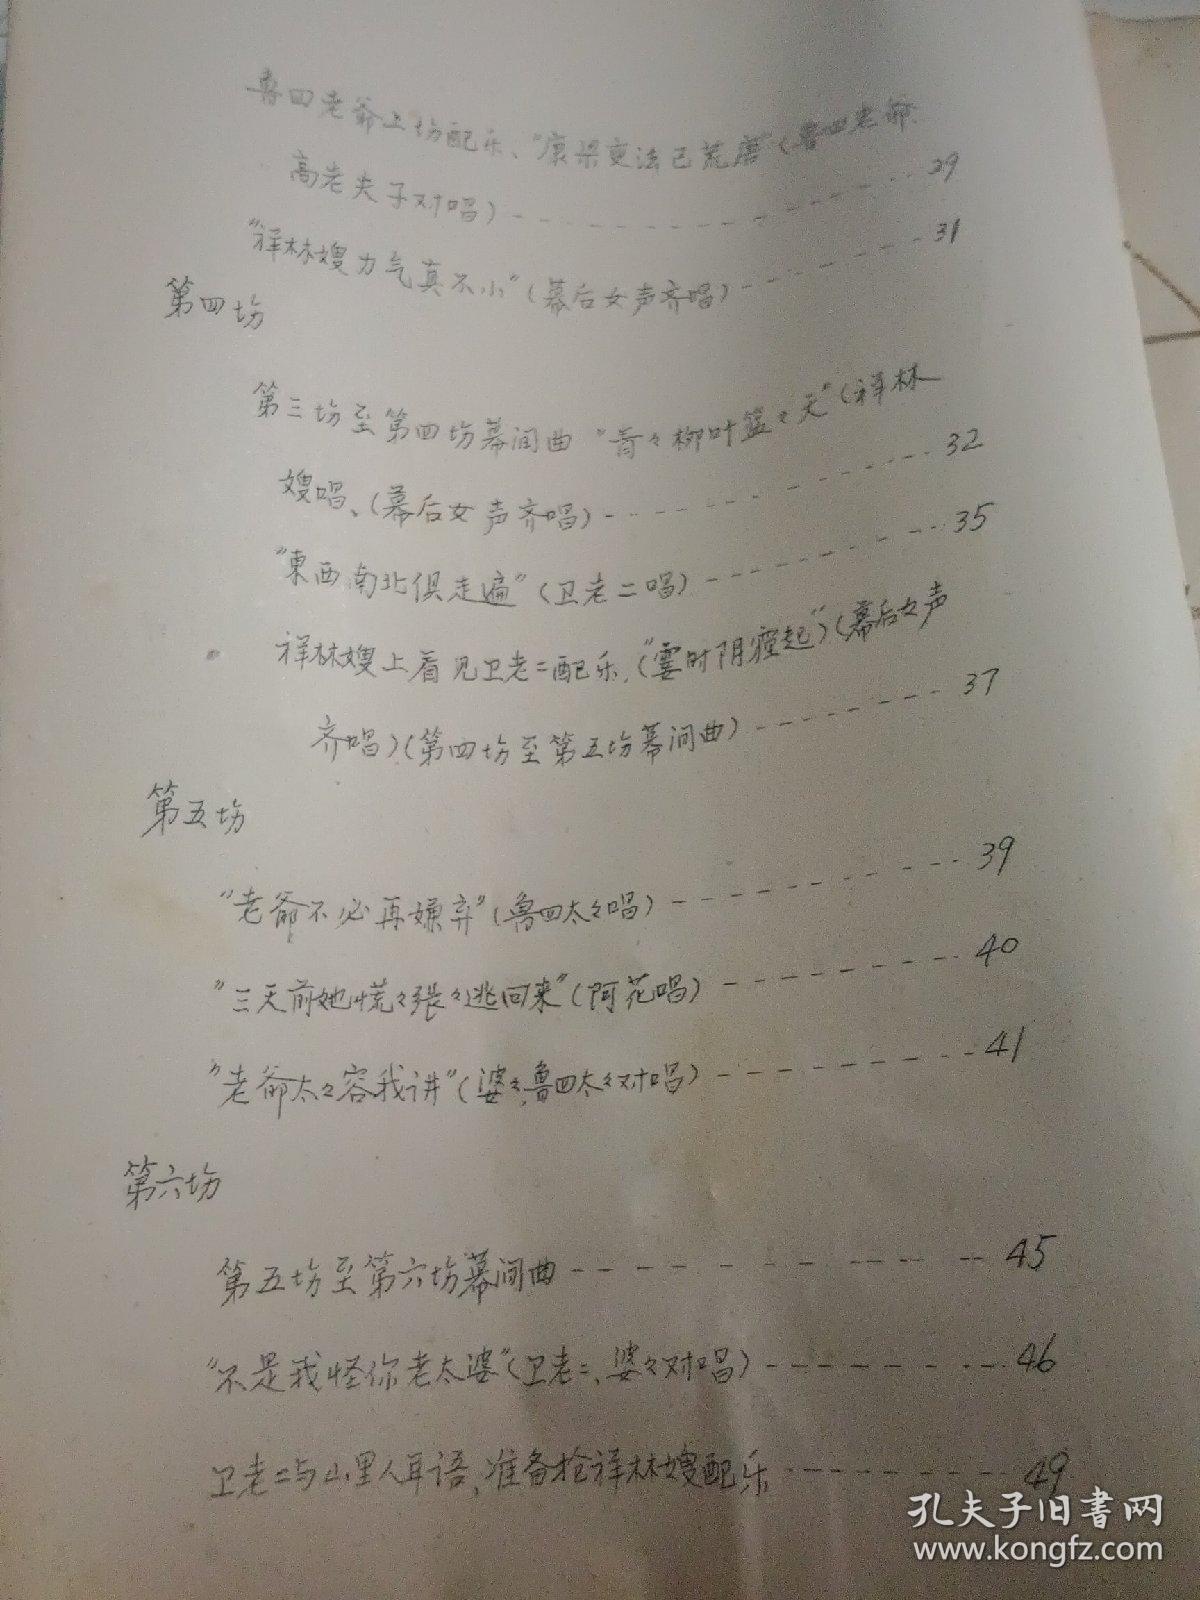 鲁四老爷上场配乐、"康梁变法已荒唐"(鲁四老爷、
高老夫子对唱)---------------29
"祥林嫂力气真不小"(幕后女声齐唱)--------31
第四场
第三场至第四场幕间曲 "青々柳叶篮々天"(祥林
嫂唱、(幕后女声齐唱)-------------32
"東西南北俱走遍"(卫老二唱)----------35
祥林嫂上看见卫老二配乐,("霎时阴霾起")(幕后女声
齐唱)(第四场至第五场幕间曲)---------37
第五场
"老爺不必再嫌弃"(鲁四太々唱)----------39
"三天前她慌々張々逃回来"(阿花唱)--------40
"老爺太々容我讲"(婆々,鲁四太々对唱)-------41
第六场
第五场至第六场幕间曲-----------45
"不是我怪你老太婆"(卫老二、婆々对唱)-------46
卫老二与山里人耳语,准备抢祥林嫂配乐--------49
孔夫子旧书网
www.kongfz.com